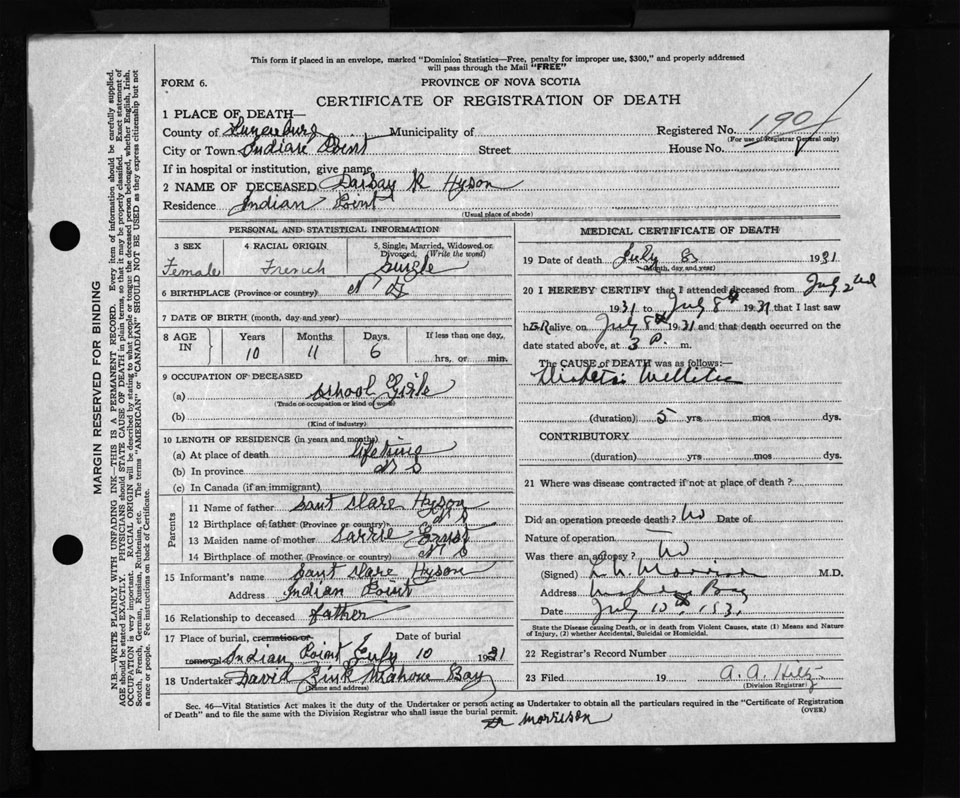 This form if placed in an envelope, marked "Dominion Statistics—Free, penalty for improper use, $300," and properly addressed
will pass through the Mail "FREE"
FORM 6. PROVINCE OF NOVA SCOTIA
CERTIFICATE OF REGISTRATION OF DEATH
1 PLACE OF DEATH—
County of Lunenburg Municipality of Registered No. 190
(For use of Registrar General only)
City or Town Indian Point Street House No.
If in hospital or institution, give name
2 NAME OF DECEASED Darsay R Hyson
Residence Indian Point
(Usual place of abode)
PERSONAL AND STATISTICAL INFORMATION
3 SEX 4 RACIAL ORIGIN 5. Single, Married, Widowed or Divorced, (Write the word)
Female French Single
6 BIRTHPLACE (Province or country) N S
7 DATE OF BIRTH (month, day and year)
8 AGE IN Years Months Days. If less than one day,
10 11 6 hrs, or min.
9 OCCUPATION OF DECEASED
(a) School Girle
(Trade or occupation or kind of work)
(b)
(Kind of industry)
10 LENGTH OF RESIDENCE (in years and months)
(a) At place of death lifetime
(b) In province N S
(c) In Canada (if an immigrant)
Parents
11 Name of father Sant Clare Hyson
12 Birthplace of father (Province or country) N S
13 Maiden name of mother Sarrie Ernst
14 Birthplace of mother (Province or country) N S
15 Informant's name Sant Clare Hyson
Address Indian Point
16 Relationship to deceased father
17 Place of burial, cremation or removal Indian Point Date of burial July 10 1931
18 Undertaker David Zink Mahone Bay
(Name and address)
MEDICAL CERTIFICATE OF DEATH
19 Date of death July 8 1931
(Month, day and year)
20 I HEREBY CERTIFY that I attended deceased from July 2nd
1931 to July 8th 1931 that I last saw
hER alive on July 8th 1931 and that death occurred on
date stated above, at 3 P. m.
The CAUSE OF DEATH was as follows:—
Diabetes Mellitus
(duration) 5 yrs mos dys.
CONTRIBUTORY
(duration) yrs. mos dys.
21 Where was disease contracted if not at place of death?
Did an operation precede death? No Date of
Nature of operation
Was there an autopsy? No
(Signed) Morrison M.D.
Address Mahone Bay
Date July 10th
State the Disease causing Death, or in death from Violent Causes, state (1) Means and Nature
of Injury, (2) whether Accidental, Suicidal or Homicidal.
22 Registrar's Record Number
23 Filed 19 A. A. Hiltz
(Division Registrar)
Sec. 46—Vital Statistics Act makes it the duty of the Undertaker or person acting as Undertaker to obtain all the particulars required in the "Certificate of Registration
of Death" and to file the same with the Division Registrar who shall issue the burial permit. (OVER)
Dr Morrison
MARGIN RESERVED FOR BINDING
N.B.—WRITE PLAINLY WITH UNFADING INK—THIS IS A PERMANENT RECORD. Every item of information should be carefully supplied.
AGE should be stated EXACTLY. PHYSICIANS should STATE CAUSE OF DEATH in plain terms, so that it may be properly classified. Exact statement of
OCCUPATION is very important. RACIAL ORIGIN will be described by stating to what people or tongue the deceased person belonged, whether English, Irish,
Scotch, French, German, Russian, Ruthenian, etc. The terms "AMERICAN" or "CANADIAN" SHOULD NOT BE USED as they express citizenship but not
a race or people. Fee instructions on back of Certificate.